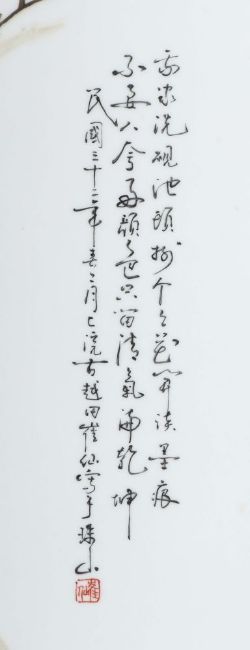 我家洗硯池頭樹个个花開淡墨痕
不要人夸好顏色只留清氣滿乾坤
民國三十二年春三月上浣古越田鶴仙寫于珠山